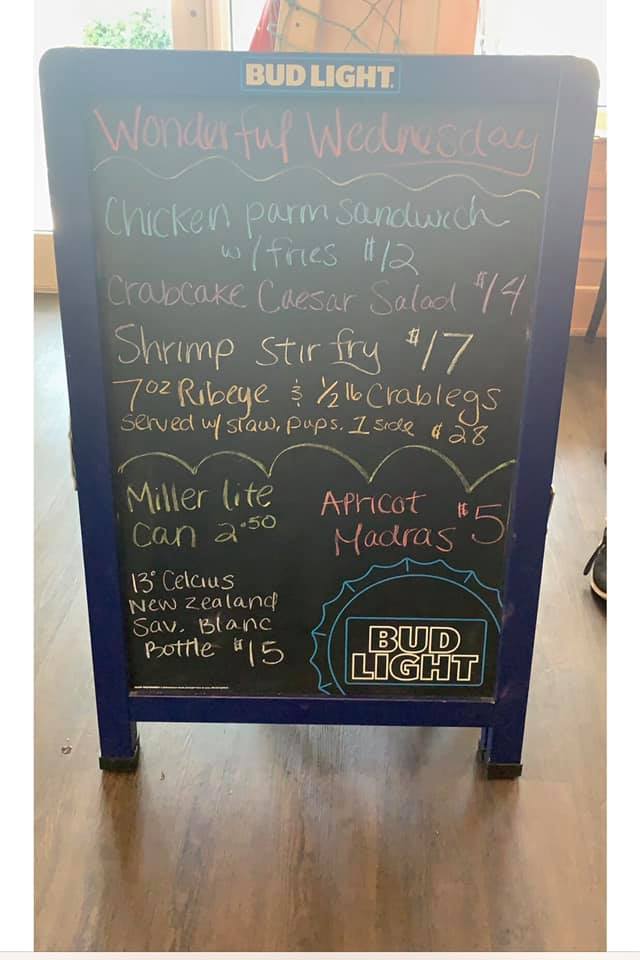 BUD LIGHT.
Wonderful Wednesday
Chicken parm sandwich
w/fries $12
Crabcake Caesar Salad $14
Shrimp Stir fry $17
7oz Ribeye & 1/2 lb Crablegs
Served w/ slaw, pups. 1 side $28
Miller lite
can 2.50
Apricot $5
Madras
13° Celcius
New Zealand
Sav. Blanc
Bottle $15
BUD
LIGHT